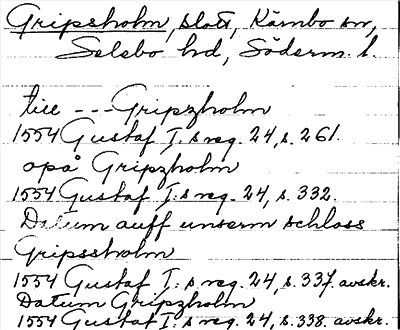 Gripsholm, slott, Kärnbo sn,
Selebo hd, Söderm. l.
till --- Gripzholm
1554 Gustaf I:s reg. 24, s. 261.
opå Gripzholm
1554 Gustaf I:s reg. 24, s. 332.
Datum auff unserm schloss
Gripssholm
1554 Gustaf I:s reg. 24, s. 337. avskr.
Datum Gripzholm
1554 Gustaf I:s reg. 24, s. 338. avskr.